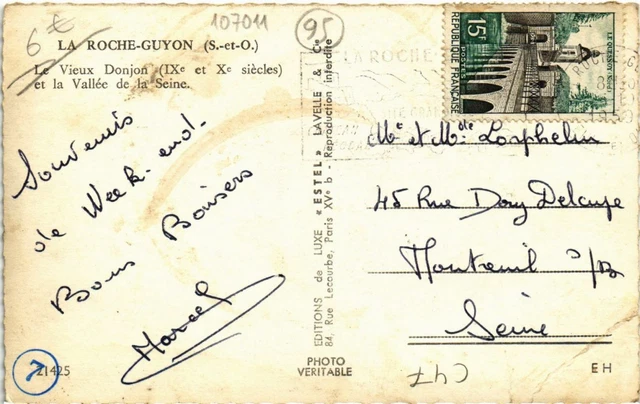 6€
107011
95
LA ROCHE-GUYON (S.-et-O.)
Le Vieux Donjon (IXe et Xe siècles)
et la Vallée de la Seine.
Souvenirs
de Week-end.
Bons Baisers
Marcel
7
21425
EDITIONS de LUXE « ESTEL » LAVELLE & Cie
84, Rue Lecourbe, Paris XVe b - Reproduction interdite
PHOTO
VERITABLE
15F
POSTES
REPUBLIQUE FRANÇAISE
LE QUESNOY
LA ROCHE
ROCHE-G
Mr et Mde Losphelin
45 Rue
Montreuil s/B
Seine
C47
EH